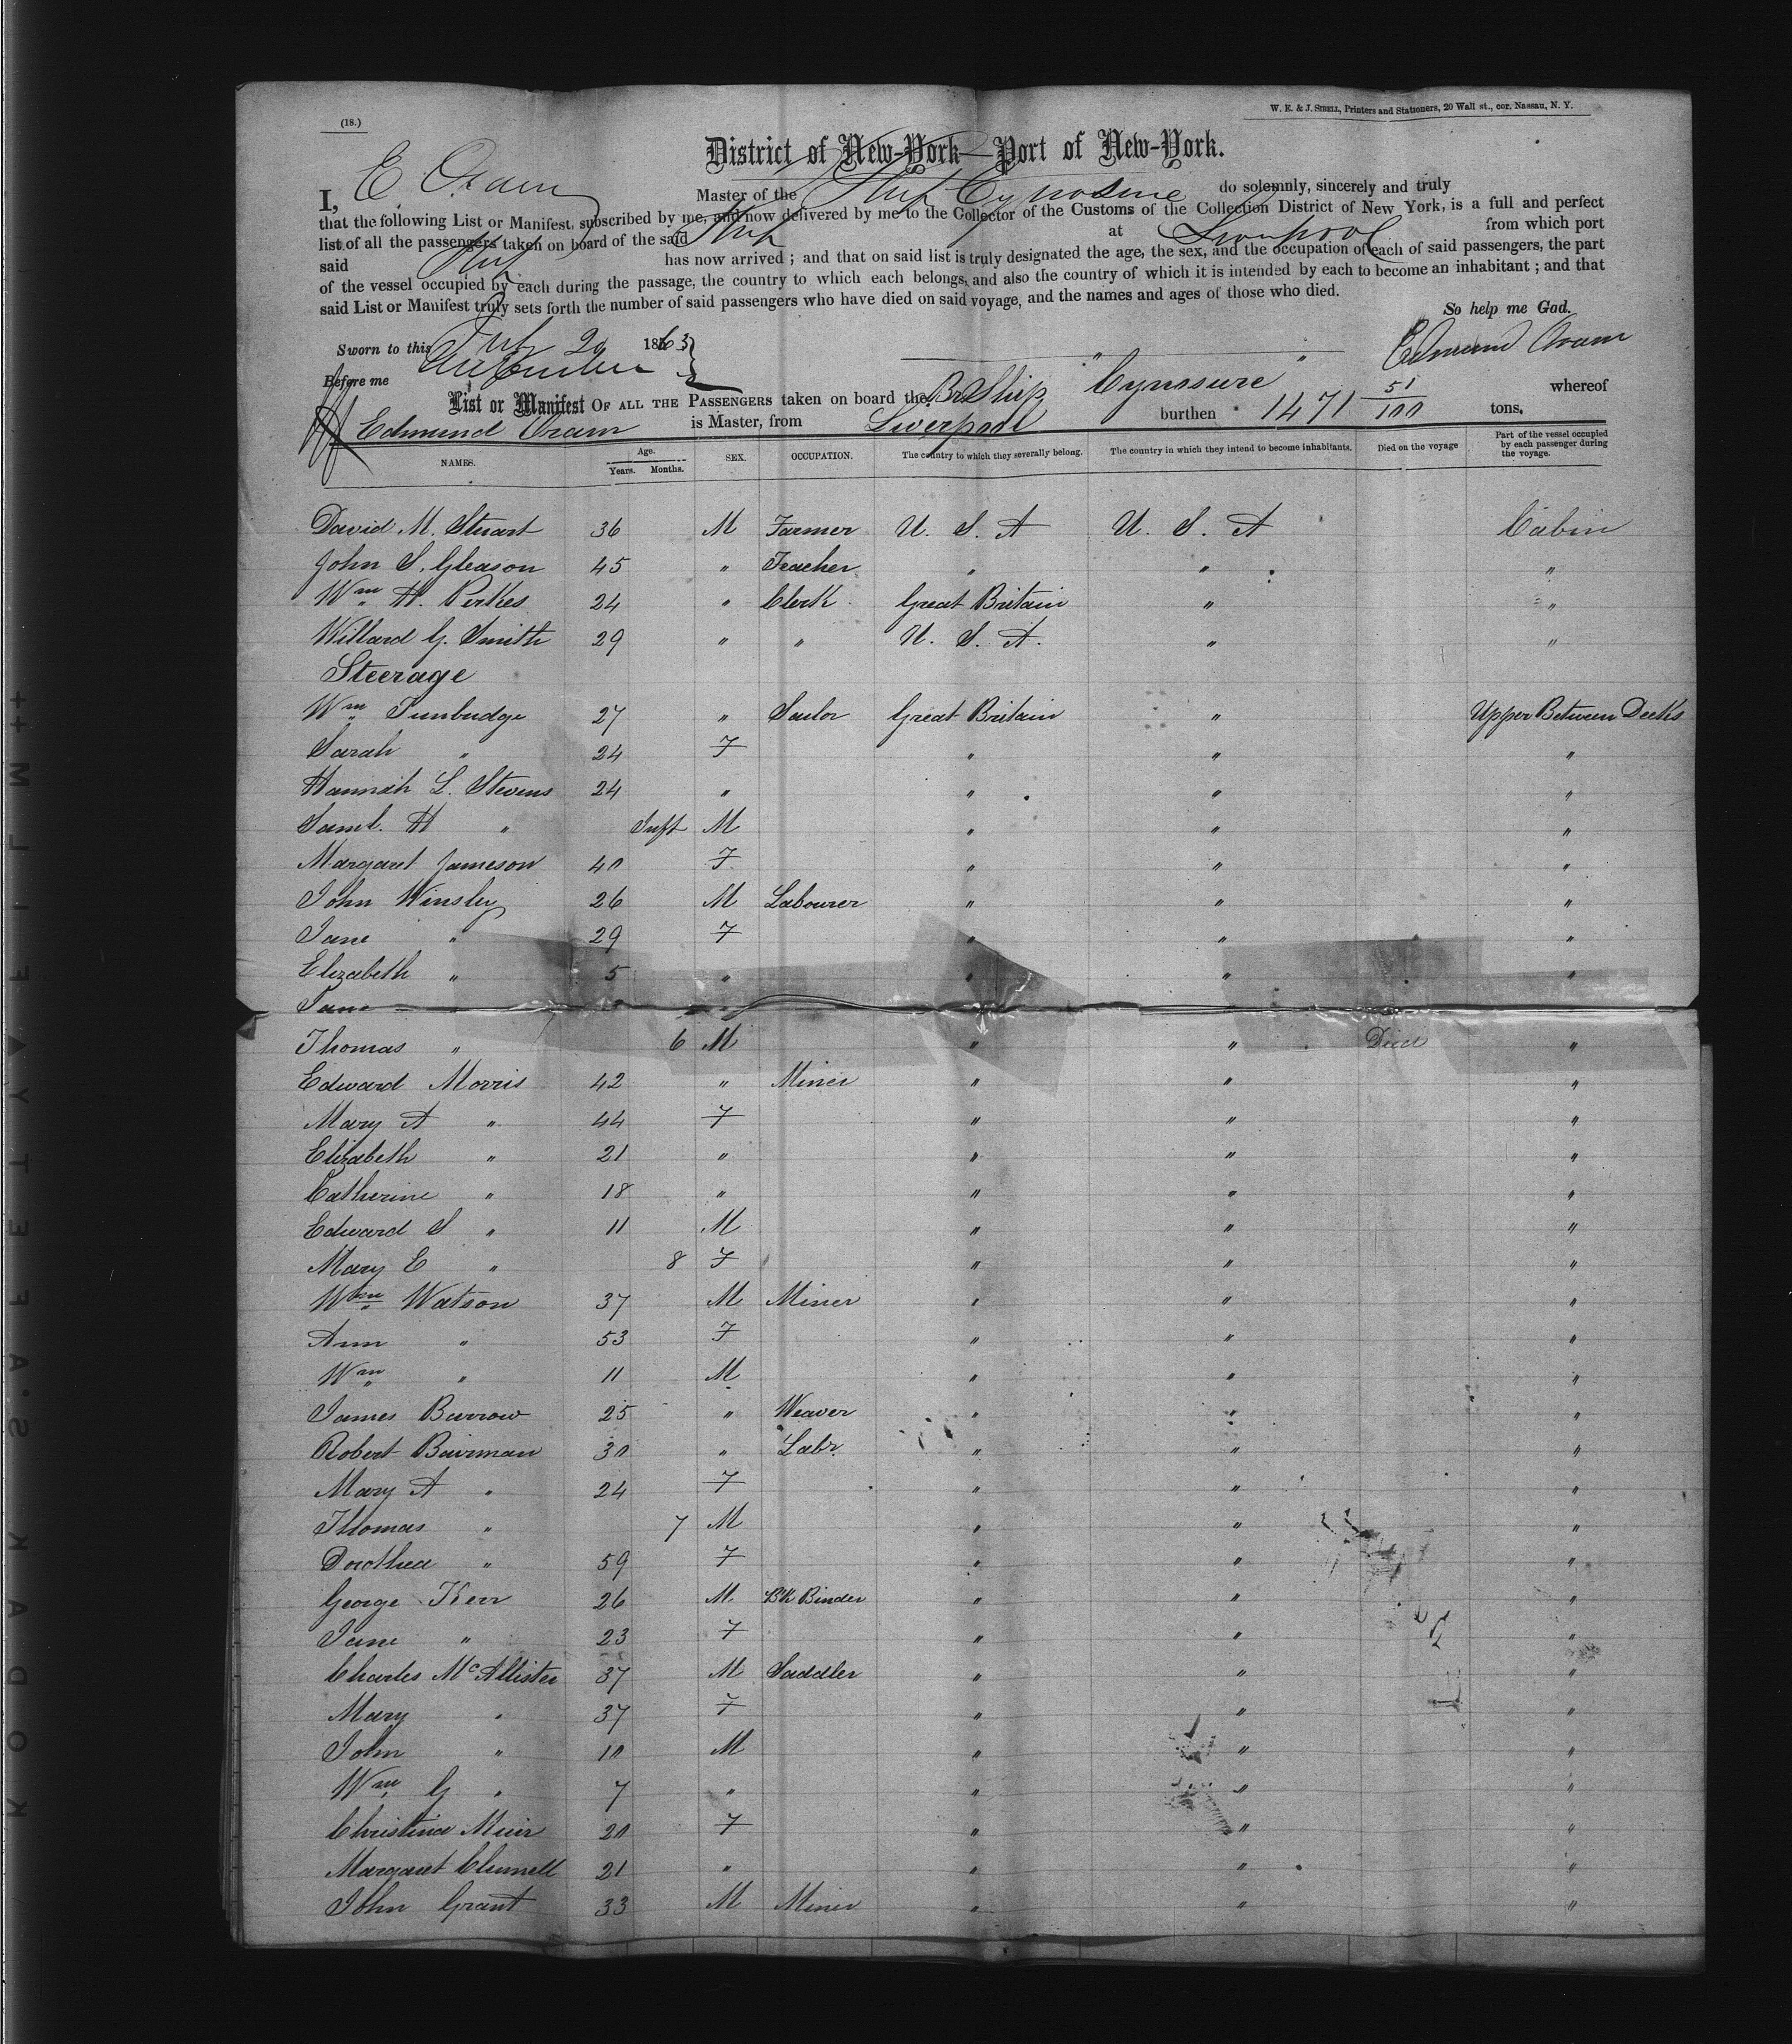 W. E. & J. SIBELL, Printers and Stationers, 20 Wall st., cor. Nassau, N. Y.
(18.)
District of New-York—Port of New-York.
I, E. Oram Master of the Ship Cynosure do solemnly, sincerely and truly
that the following List or Manifest, subscribed by me, and now delivered by me to the Collector of the Customs of the Collection District of New York, is a full and perfect
list of all the passengers taken on board of the said Ship at Liverpool from which port
said Ship has now arrived ; and that on said list is truly designated the age, the sex, and the occupation of each of said passengers, the part
of the vessel occupied by each during the passage, the country to which each belongs, and also the country of which it is intended by each to become an inhabitant ; and that
said List or Manifest truly sets forth the number of said passengers who have died on said voyage, and the names and ages of those who died.
So help me God.
Sworn to this July 20 1863 Edmund Oram
Before me
List or Manifest OF ALL THE PASSENGERS taken on board the Br Ship Cynosure whereof
Edmund Oram is Master, from Liverpool burthen 1471 51/100 tons.
NAMES. Age. Years. Months. SEX. OCCUPATION. The country to which they severally belong. The country in which they intend to become inhabitants. Died on the voyage Part of the vessel occupied by each passenger during the voyage.
David M. Stuart 36 M Farmer U. S. A U. S. A Cabin
John S. Gleason 45 " Teacher " " "
Wm H. Perkes 24 " Clerk Great Britain " "
Willard G. Smith 29 " " U. S. A. " "
Steerage
Wm Tunbudge 27 " Sailor Great Britain " Upper Between Decks
Sarah " 24 F " " "
Hannah L. Stevens 24 " " " "
Saml. H " Inft M " " "
Margaret Jameson 40 F " " "
John Winsley 26 M Labourer " " "
Jane " 29 F " " "
Elizabeth " 5 " " " "
Jane
Thomas " 6 M " " Died "
Edward Morris 42 " Miner " " "
Mary A " 44 F " " "
Elizabeth " 21 " " " "
Catherine " 18 " " " "
Edward S " 11 M " " "
Mary E " 8 F " " "
Wm Watson 37 M Miner " " "
Ann " 53 F " " "
Wm " 11 M " " "
James Barrow 25 " Weaver " " "
Robert Bairman 30 " Labr " " "
Mary A " 24 F " " "
Thomas " 7 M " " "
Dorothea " 59 F " " "
George Kerr 26 M Bk Binder " " "
Jane " 23 F " " "
Charles McAllister 37 M Saddler " " "
Mary " 37 F " " "
John " 10 M " " "
Wm G " 7 " " " "
Christina Muir 20 F " " "
Margaret Clunnell 21 " " " "
John Grant 33 M Miner " " "
KODAK·SAFETY FILM